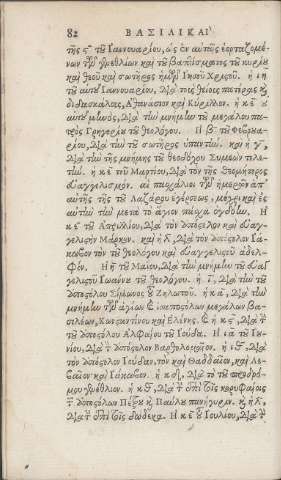 82 ΒΑΣΙΛΙΚΑΙ
τῆς ϛʹ τοῦ Ἰαννουαρίου, ὡς ἐν αὐταῖς ἑορταζομέ-
νων τῶν γενεθλίων καὶ τοῦ βαπτίσματος τοῦ κυρίου
καὶ θεοῦ καὶ σωτῆρος ἡμῶν Ἰησοῦ Χριστοῦ. ἡ ιη
τοῦ αὐτοῦ Ἰαννουαρίου, διὰ τοὺς θείους πατέρας καὶ
διδασκάλους, Ἀθανάσιον καὶ Κύριλλον. ἡ κε τοῦ
αὐτοῦ μηνὸς, διὰ τὴν μνήμην τοῦ μεγάλου πα-
τρὸς Γρηγορίου τοῦ θεολόγου. Ἡ βʹ τοῦ Φεβρουα-
ρίου, διὰ τὴν τοῦ σωτῆρος ὑπαντήν. καὶ ἡ γʹ,
διὰ τὴν τῆς μνήμης τοῦ θεοδόχου Συμεὼν τελε-
τήν. ἡ κε τοῦ Μαρτίου, διὰ τὸν τῆς Θεομήτορος
εὐαγγελισμόν. αἱ παράλιαι τῶν ἡμερῶν ἀπ'
αὐτῆς τῆς τοῦ Λαζάρου ἐγέρσεως, μέχρι καὶ ἐς
αὐτὴν τὴν μετὰ τὸ ἅγιον πάσχα ὀγδόην. Ἡ
κε τοῦ Ἀπριλίου, διὰ τὸν ἀπόστολον καὶ εὐαγ-
γελιστὴν Μάρκον. καὶ ἡ λʹ, διὰ τὸν ἀπόστολον Ἰά-
κωβον τὸν τοῦ θεολόγου καὶ εὐαγγελιστοῦ ἀδελ-
φόν. Ἡ ηʹ τοῦ Μαΐου, διὰ τὴν μνήμην τοῦ εὐαγ-
γελιστοῦ Ἰωάννου τοῦ θεολόγου. ἡ ιʹ, διὰ τὴν τοῦ
ἀποστόλου Σίμωνος τοῦ ζηλωτοῦ. ἡ κα, διὰ τὴν
μνήμην τῶν ἁγίων καὶ ἰσαποστόλων μεγάλων βα-
σιλέων, Κωνσταντίνου καὶ Ἑλένης. ἡ κϛ, διὰ τὴν
τοῦ ἀποστόλου Ἀλφαίου τοῦ Ἰούδα. Ἡ ια τοῦ Ἰου-
νίου, διὰ τὸν ἀπόστολον Βαρθολομαῖον. ἡ ιθ, διὰ
τὸν ἀπόστολον Ἰούδαν, τὸν καὶ Θαδδαῖον, καὶ Λε-
βαῖον καὶ Ἰάκωβον. ἡ κδ, διὰ τὸ τοῦ προδρό-
μου γενέθλιον. ἡ κθ, διὰ τὴν ἐπὶ τοῖς κορυφαίοις
τῶν ἀποστόλων Πέτρῳ καὶ Παύλῳ πανήγυριν. καὶ ἡ λʹ,
διὰ τὴν ἐπὶ τοῖς δώδεκα. Ἡ κε τοῦ Ἰουλίου, διὰ τὴν